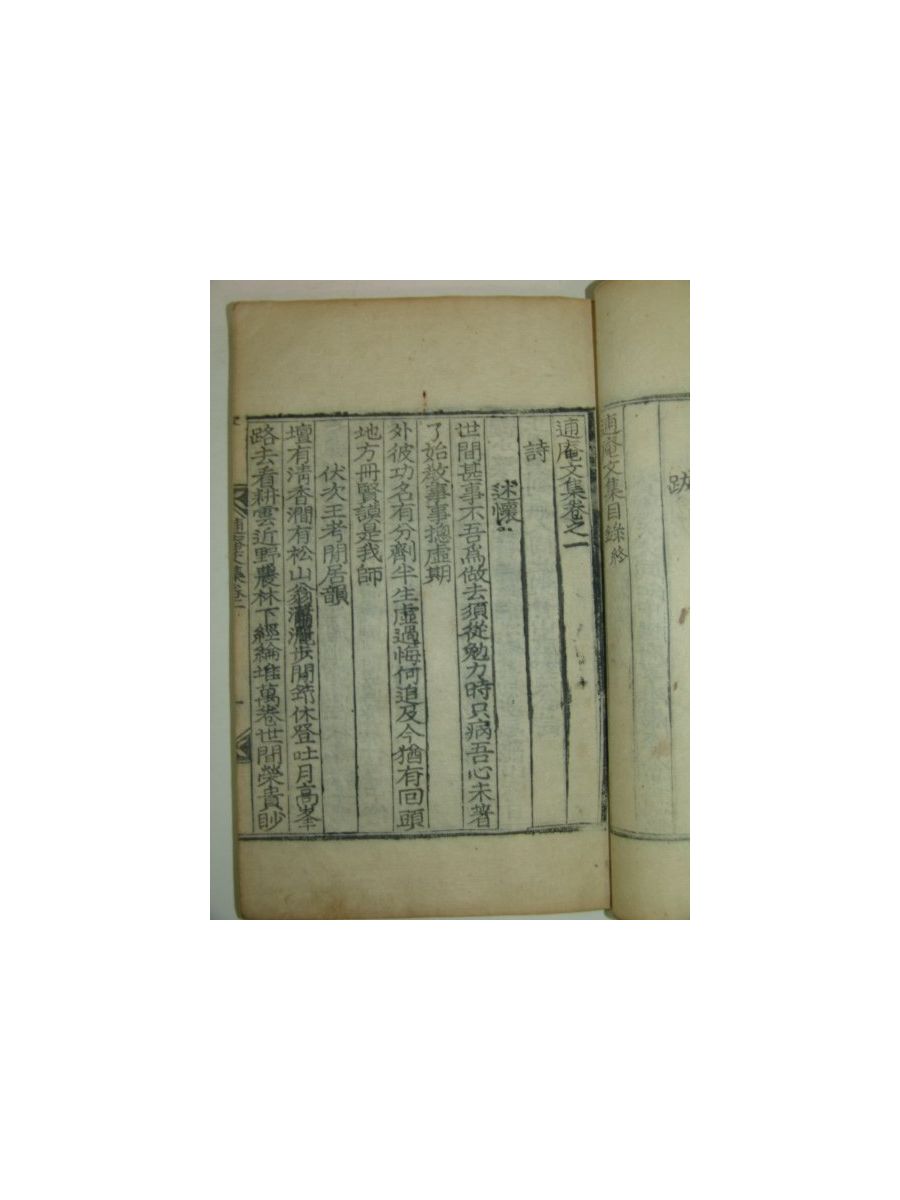 跋
逋庵文集目錄終
逋庵文集卷之一
詩
述懷
世間甚事不吾爲做去須從勉力時只病吾心未著
了始敎事事摠虛期
外彼功名有分劑半生虛過悔何追及今猶有回頭
地方冊賢謨是我師
伏次王考閒居韻
壇有淸香澗有松山翁步閒笻休登吐月高峯
路去看耕雲近野農林下經綸堆萬卷世間榮貴眇